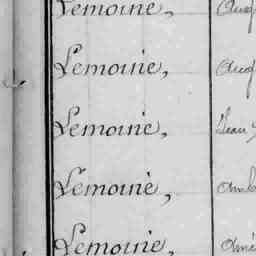 Lemoine, Aug
Lemoine, Aug
Lemoine, Jean
Lémoinè, Amb
Lemoine, Amé